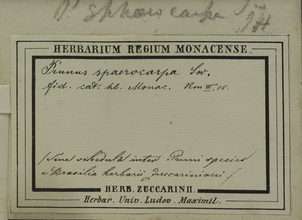 P. sphaerocarpa Sw
HERBARIUM REGIUM MONACENSE.
Prunus spaerocarpa Sw.
fid. cat. hb. Monac. Non III. 05.
(Sine schedula inter Pruni species
e Brasilia herbarii Zuccariniani)
HERB. ZUCCARINII.
Herbar. Univ. Ludov. Maximil.